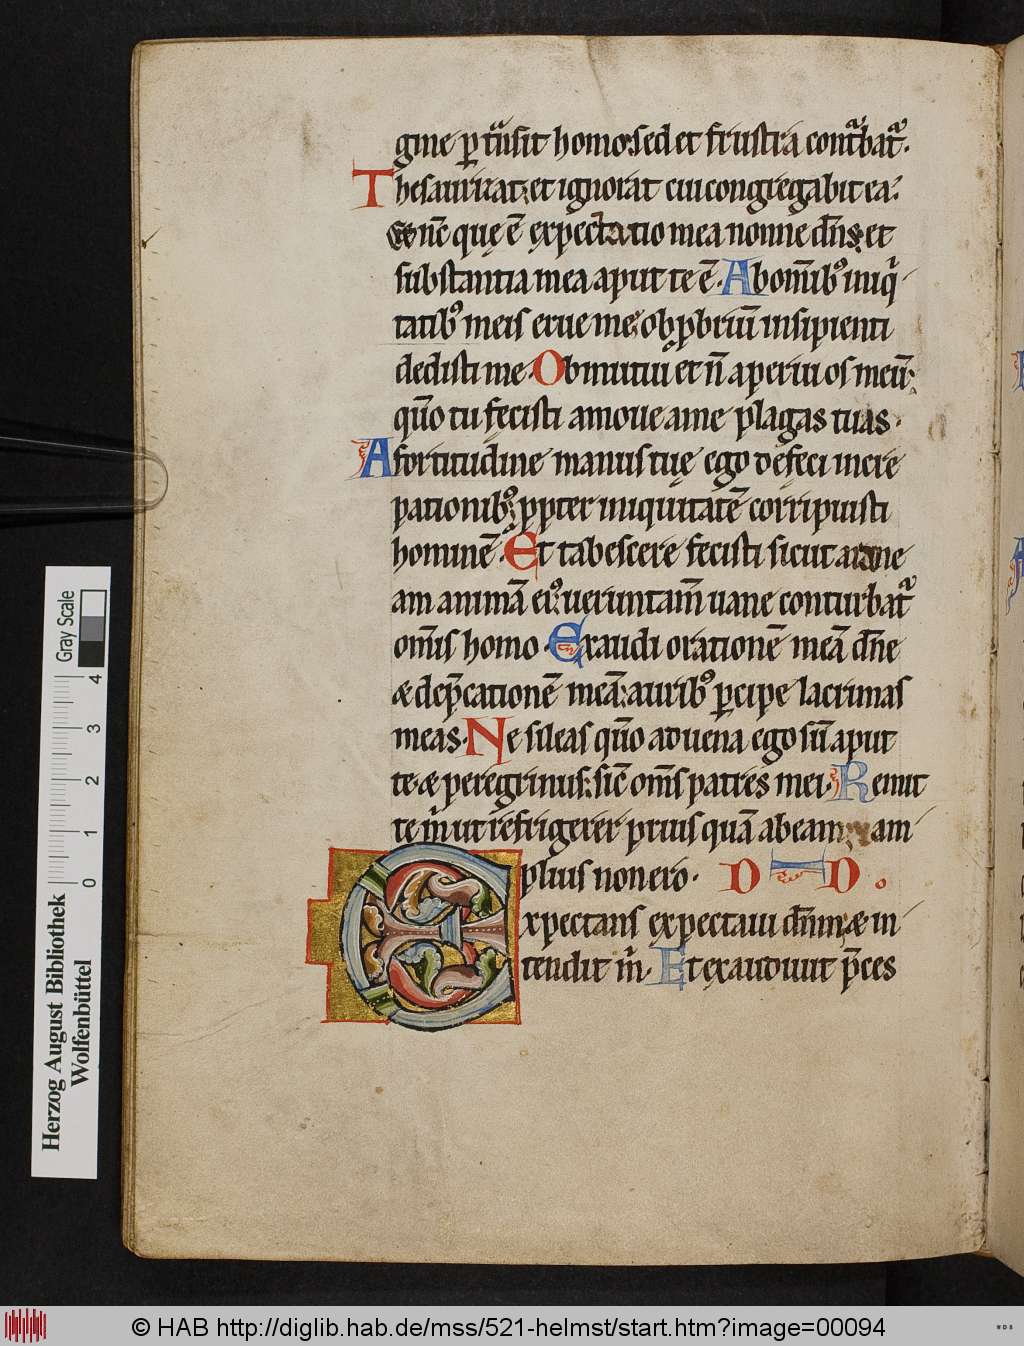 gine ꝑ tͣnsit homo: sed et frustra contͣbat᷑.
Thesaurizat: et ignorat cui congregabit ea.
Et nc̄ quę ē expectatio mea nonne dn̄s: et
substantia mea aput te ē. Ab om̄ibꝰ iniqͥ
tatibꝰ meis erue me: obꝓbriū insipienti
dedisti me. Obmutui et n̄ aperui os meū:
qm̄o tu fecisti amoue a me plagas tuas.
A fortitudine manus tuę ego defeci in cre
pationibꝰ: ꝓpter iniquitatē corripuisti
hominē. Et tabescere fecisti sicut arane
am animā eiꝰ: ueruntam̄ uane conturbat᷑
om̄is homo. Exaudi orationē meā dn̄e
& dep̄cationē meā: auribꝰ ꝑcipe lacrimas
meas. Ne sileas qm̄o aduena ego sū aput
te: & peregrinus: sic̄ om̄s patres mei. Remit
te m̄ ut refrigerer prius quā abeam: am
plius non ero. D I D.
Expectans expectaui dn̄m: & in
tendit m̄. Et exaudiuit p̄ces
Herzog August Bibliothek
Wolfenbüttel
0 1 2 3 4
Gray Scale
© HAB http://diglib.hab.de/mss/521-helmst/start.htm?image=00094